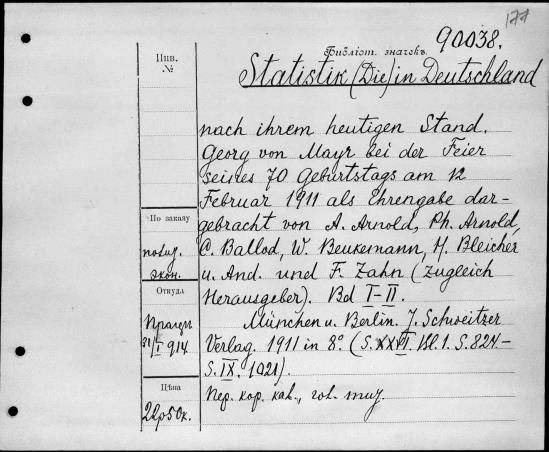 177
90038.
Библіот. значекъ
Statistik (Die) in Deutschland
nach ihrem heutigen Stand.
Georg von Mayr bei der Feier
seines 70 Geburtstags am 12
Februar 1911 als Ehrengabe dar-
gebracht von A. Arnold, Ph. Arnold,
C. Ballod, W. Beukemann, H. Bleicher
u. And. und F. Zahn (zugleich
Herausgeber). Bd I-II.
München u. Berlin. J. Schweitzer
Verlag. 1911 in 8°. (S. XXVI. Bl. 1. S. 824-
S. IX. 1021).
Пер. кор. кав., гол. туз.
Инв.
№
По заказу
полиц.
экон.
Откуда
31/I 914.
Цѣна